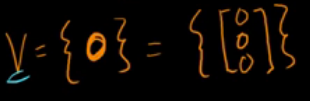 V = { 0 } = { [ 0 0 0 ] }